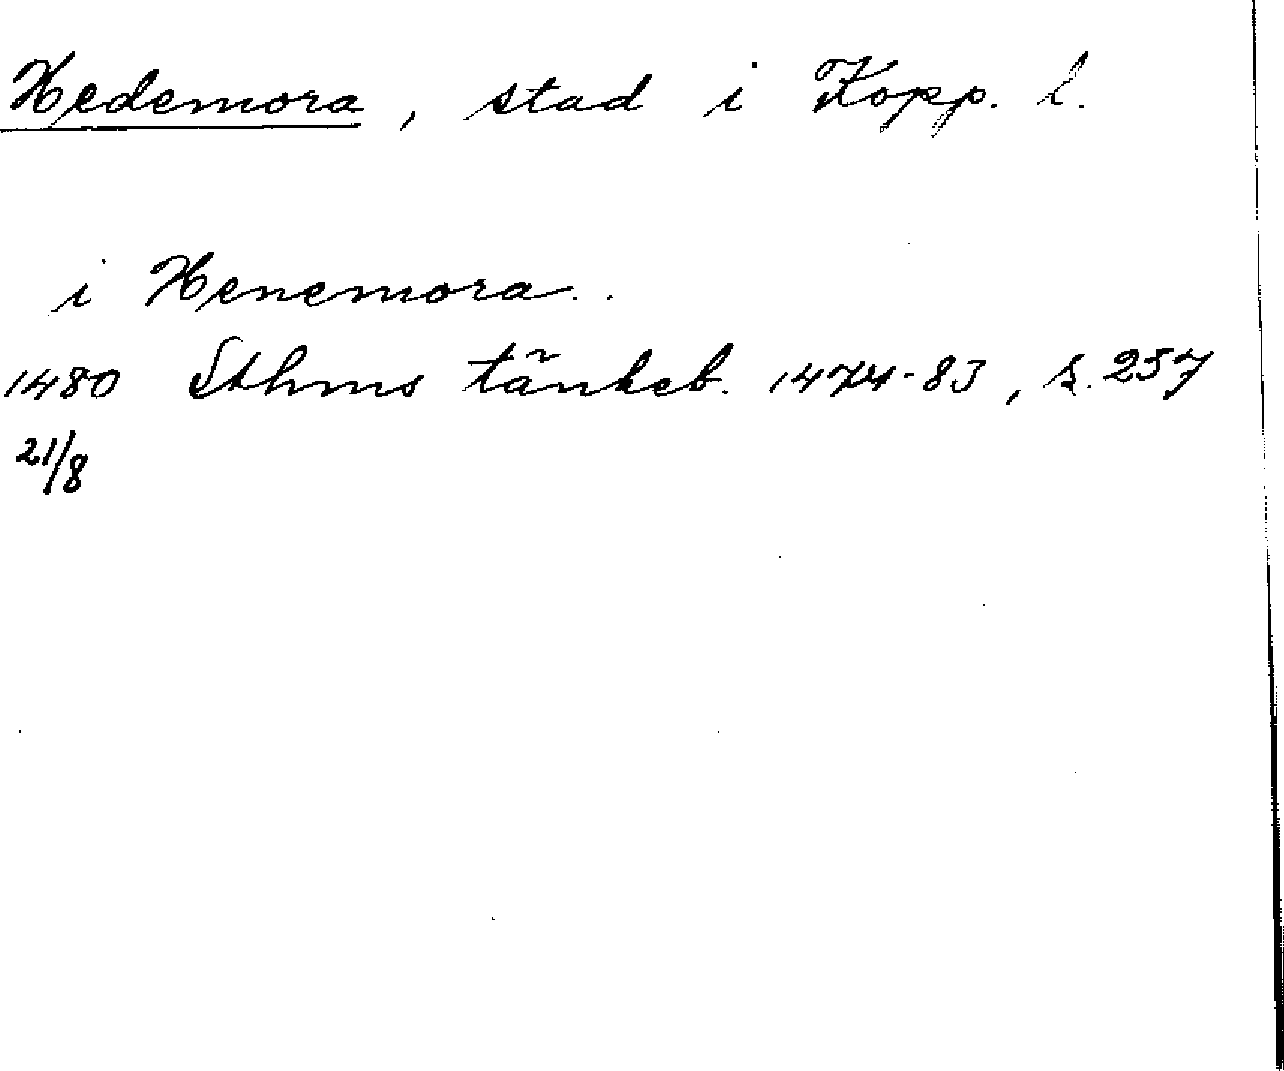 Hedemora, stad i Kopp. l.
i Henemora..
1480 Sthms tänkeb. 1474-83, s. 257
21/8